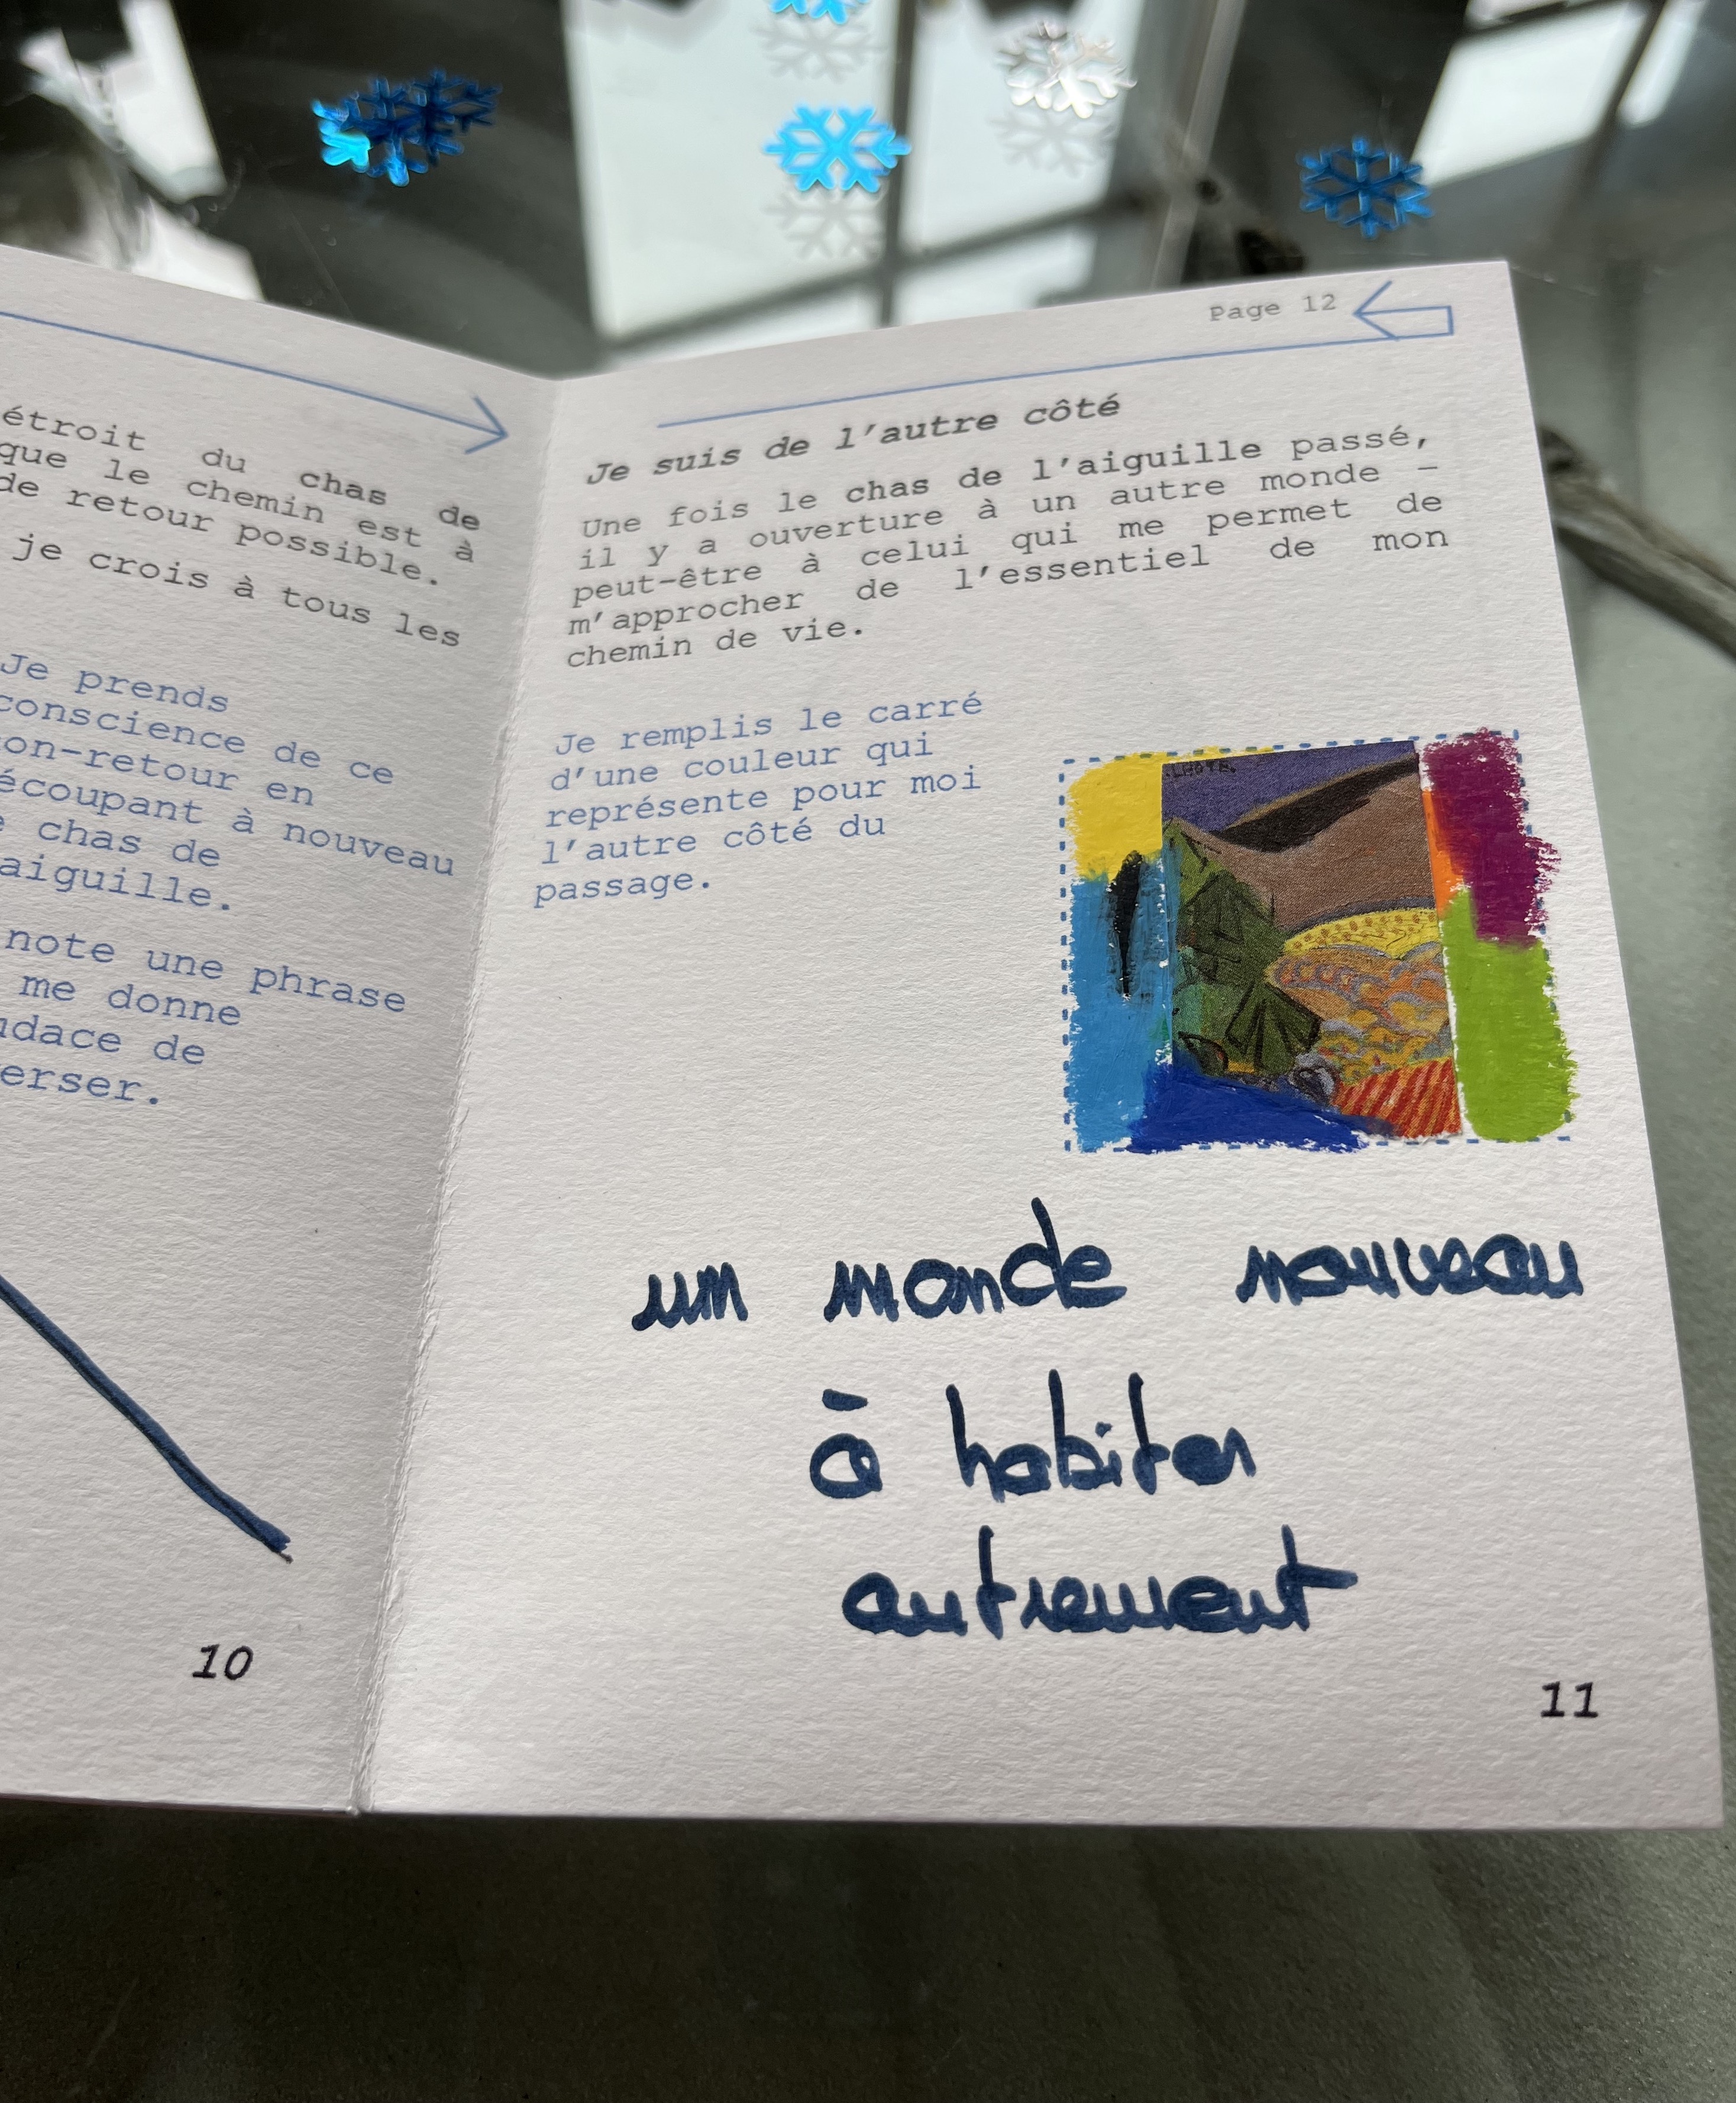 étroit du chas de
que le chemin est à
de retour possible.
je crois à tous les
Je prends
conscience de ce
on-retour en
écoupant à nouveau
chas de
aiguille.
note une phrase
me donne
udace de
erser.
10
Page 12
Je suis de l'autre côté
Une fois le chas de l'aiguille passé,
il y a ouverture à un autre monde –
peut-être à celui qui me permet de
m'approcher de l'essentiel de mon
chemin de vie.
Je remplis le carré
d'une couleur qui
représente pour moi
l'autre côté du
passage.
LHOTE.
un monde nouveau
à habiter
autrement
11